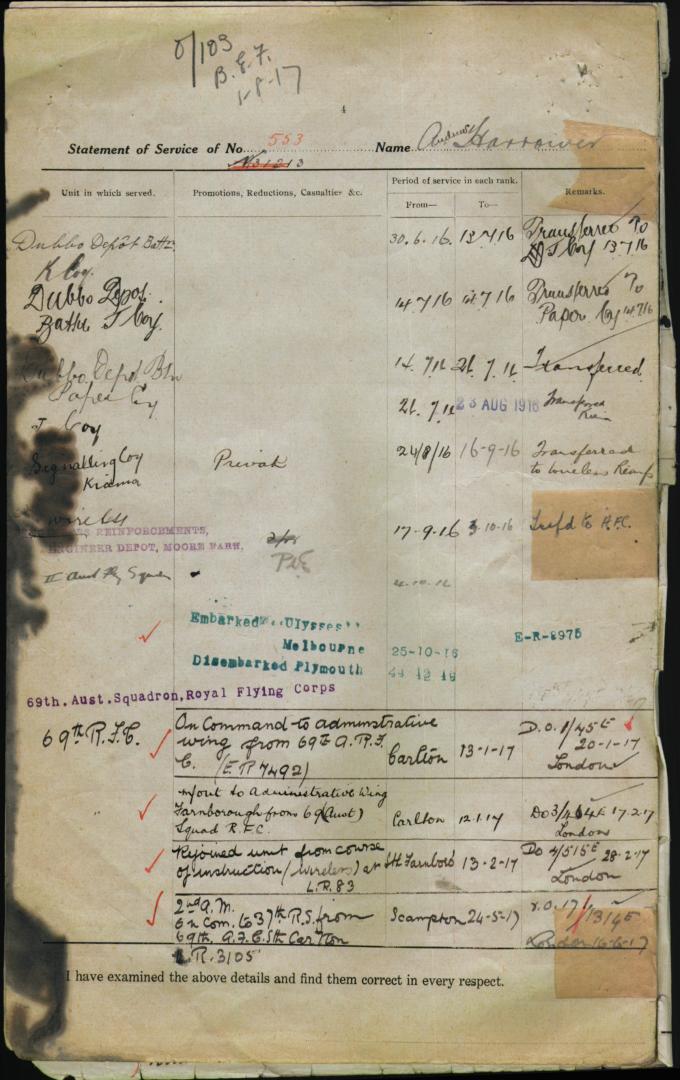 0/103
B.E.F.
1-8-17
4
Statement of Service of No. 553 Name Andrew Harrower
Unit in which served. Promotions, Reductions, Casualties &c. Period of service in each rank. Remarks.
From— To—
Dubbo Depôt Battn 30.6.16. 13 7 16 Transferred To
K Coy. J Coy 13 7 16
Dubbo Depot. 14 7 16 14 7 16 Transferred To
Battn J Coy. Paper Coy 14 7 16
Dubbo Depot Btn 14. 7 16 21. 7. 16 Transferred
Paper Coy
J Coy 21. 7. 16 23 AUG 1916 Transferred
Signalling Coy Private 24/8/16 16-9-16 Transferred
Kiama to wireless Reinf
Wireless 17-9.16 3-10-16 Trsfd to A.F.C.
REINFORCEMENTS,
ENGINEER DEPOT, MOORE PARK,
Pte
II Aust Fly Squad 4.10.16
Embarked "Ulysses"
Melbourne 25-10-16 E-R-8975
Disembarked Plymouth 12 16
69th. Aust. Squadron, Royal Flying Corps
69th R.F.C. On Command to adminstrative D.O. 1/45 E
wing from 69th A.R.F. Carlton 13-1-17 20-1-17
C. (E.R 7492) London
" m/out to Administrative Wing
Farnborough from 69 (Aust) Carlton 12.1.17 Do 3/ 17.2.17
Squad R.F.C. London
Rejoined unit from course Do 4/515E 28-2-17
of instruction (wireless) at Sth Farnboro' 13-2-17 London
L.R.83
2nd A.M.
on Com. to 37th R.S. from Scampton 24-5-17
69th. A.F.C. Sth Carlton London 16-6-17
L.R. 3105
I have examined the above details and find them correct in every respect.